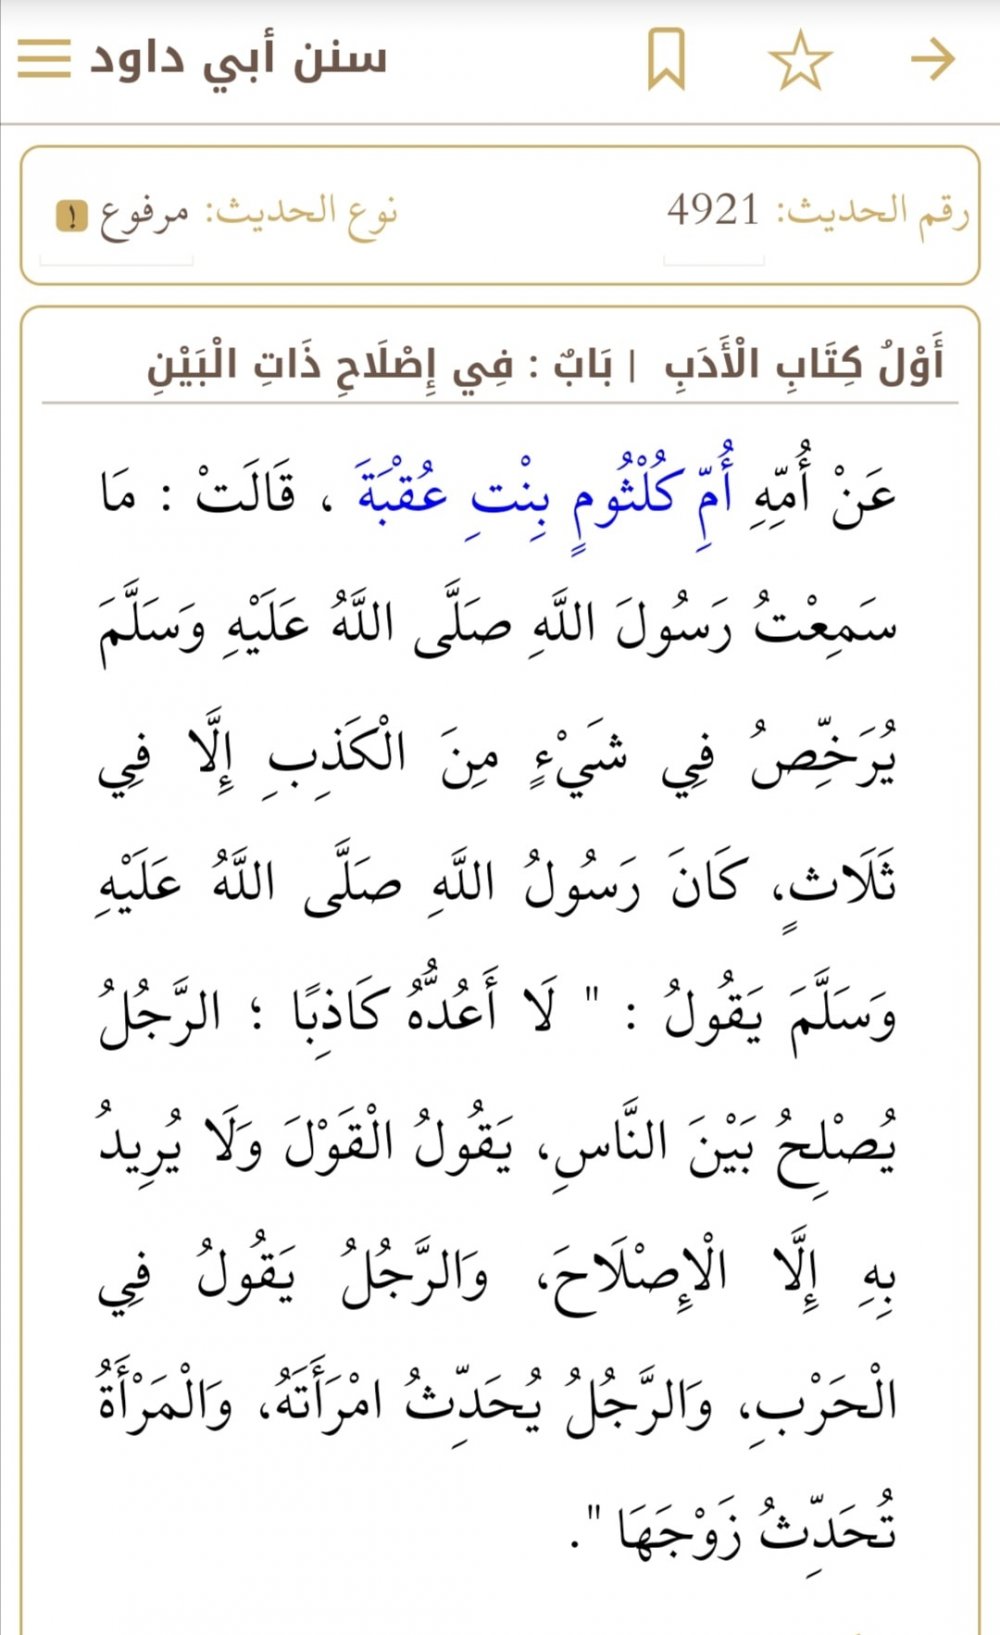 سنن أبي داود
رقم الحديث: 4921 نوع الحديث: مرفوع
أَوْلُ كِتَابِ الْأَدَبِ | بَابٌ : فِي إِصْلَاحِ ذَاتِ الْبَيْنِ
عَنْ أُمِّهِ أُمِّ كُلْثُومٍ بِنْتِ عُقْبَةَ ، قَالَتْ : مَا
سَمِعْتُ رَسُولَ اللَّهِ صَلَّى اللَّهُ عَلَيْهِ وَسَلَّمَ
يُرَخِّصُ فِي شَيْءٍ مِنَ الْكَذِبِ إِلَّا فِي
ثَلَاثٍ، كَانَ رَسُولُ اللَّهِ صَلَّى اللَّهُ عَلَيْهِ
وَسَلَّمَ يَقُولُ : " لَا أَعُدُّهُ كَاذِبًا ؛ الرَّجُلُ
يُصْلِحُ بَيْنَ النَّاسِ، يَقُولُ الْقَوْلَ وَلَا يُرِيدُ
بِهِ إِلَّا الْإِصْلَاحَ، وَالرَّجُلُ يَقُولُ فِي
الْحَرْبِ، وَالرَّجُلُ يُحَدِّثُ امْرَأَتَهُ، وَالْمَرْأَةُ
تُحَدِّثُ زَوْجَهَا ".